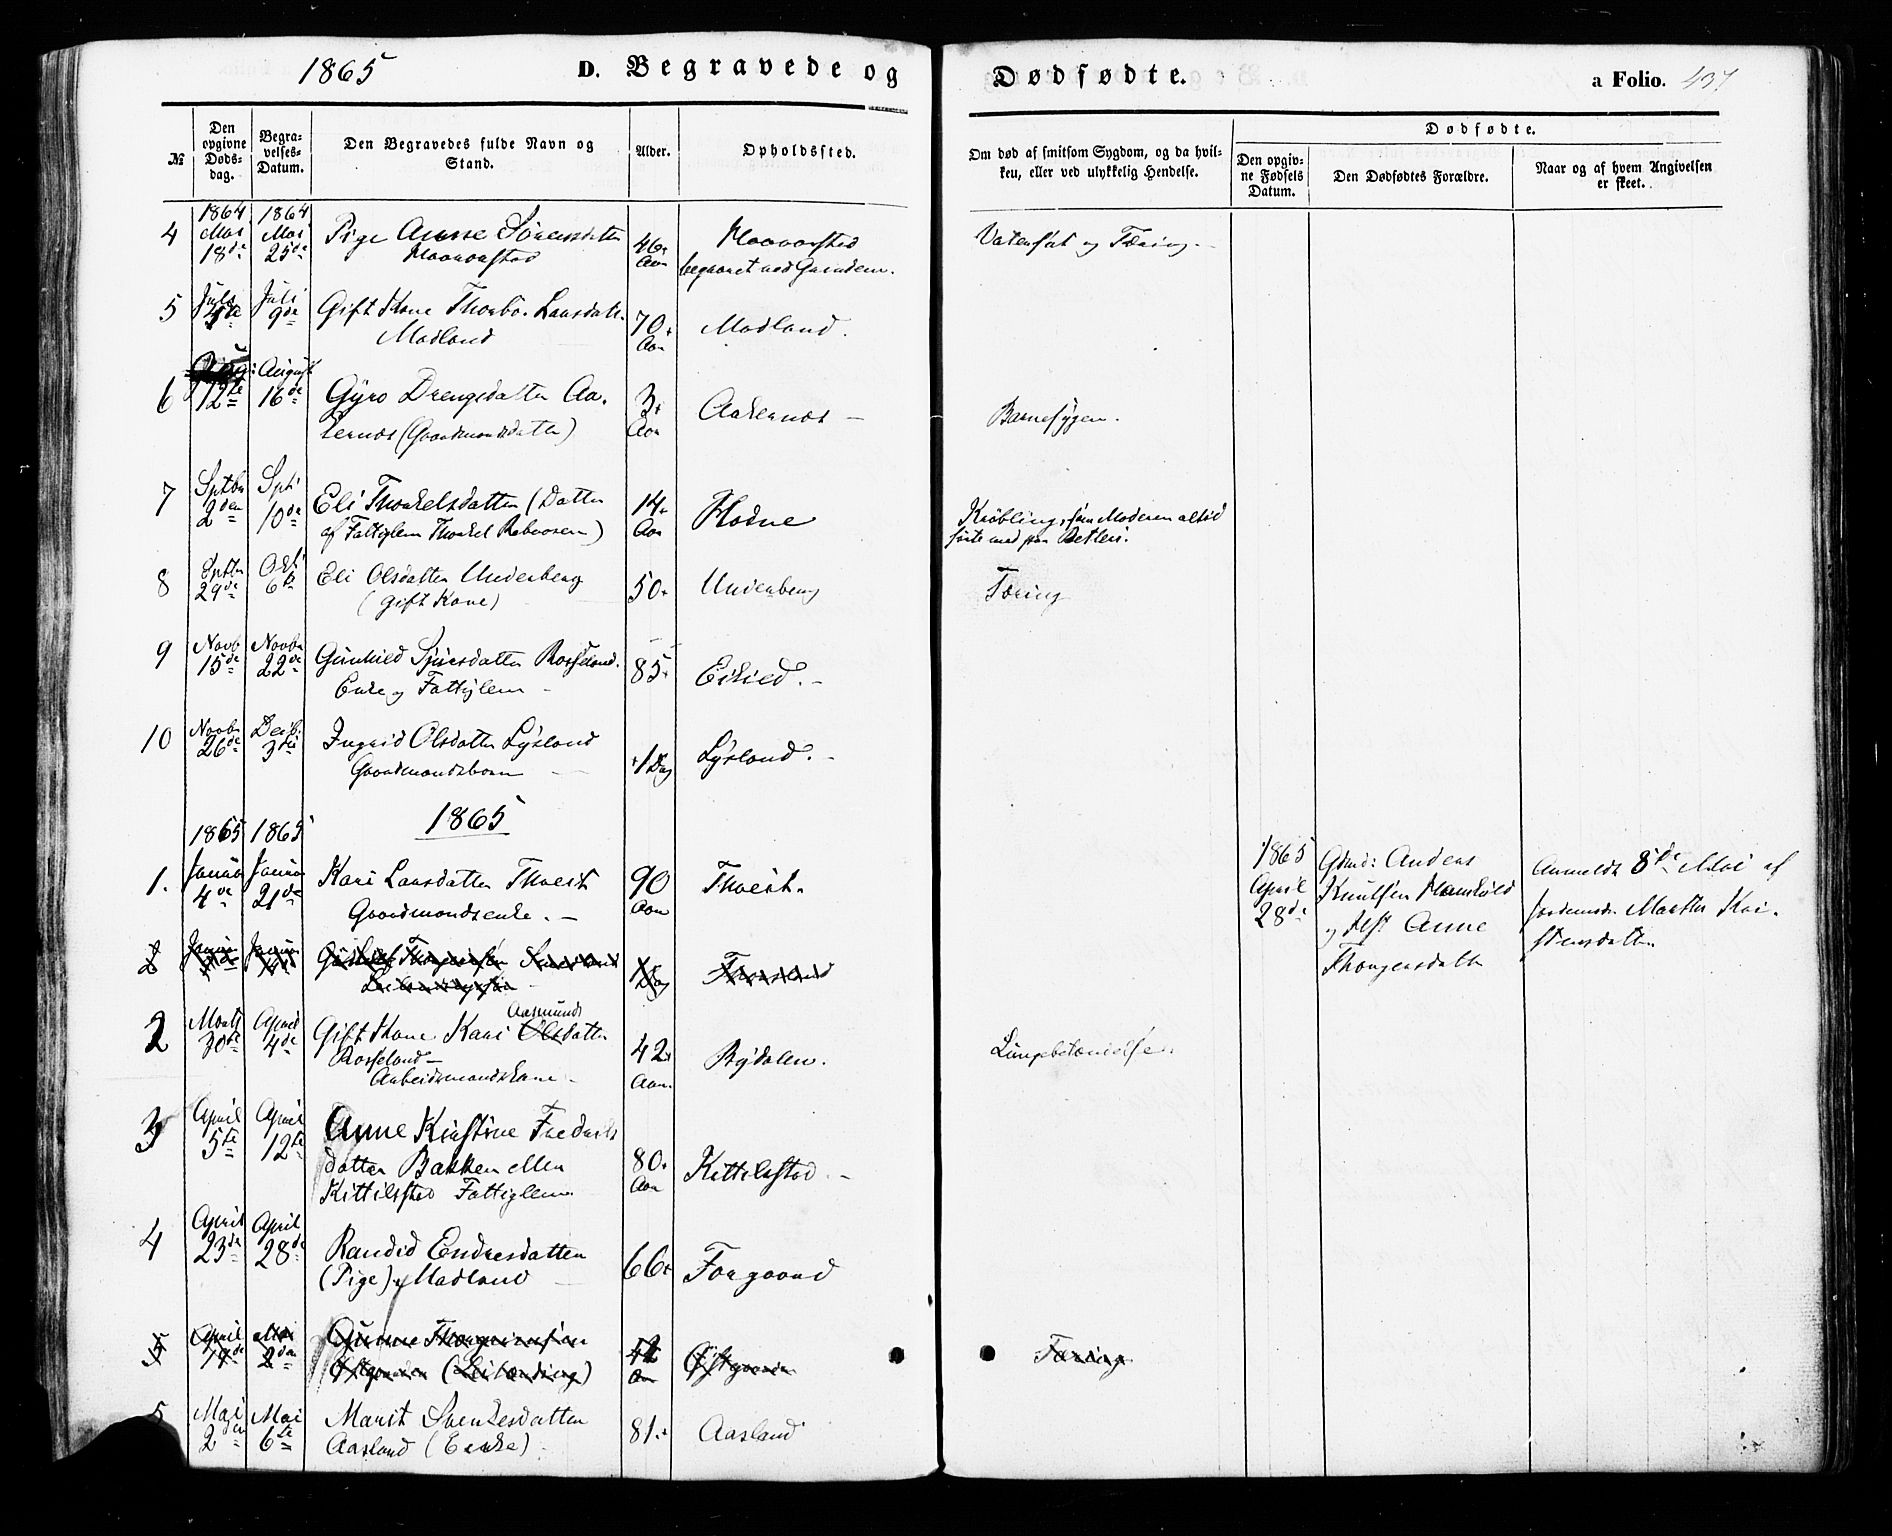 1865
D. Begravede og Dødfødte.
a Folio. 437
№
Den opgivne Døds-dag.
Begra-velses-Datum.
Den Begravedes fulde Navn og Stand.
Alder.
Opholdssted.
Om død af smitsom Sygdom, og da hvil-
ken, eller ved ulykkelig Hendelse.
Dødfødte.
Den opgiv-ne Fødsels Datum.
Den Dødfødtes Forældre.
Naar og af hvem Angivelsen er skeet.
1864 1864
4 Mai 18de Mai 25de Pige Anne Sørensdatter 46 Aar
begravet ved Grindem. Vatersot og Tæring.
5 Juli Juli 9de Gift Kone Thorbo. Larsdatt. Madland 70 Aar Madland.
6 Aug: 12te August 16de Gyro Drengsdatter Aa-
kernes (Gaardmandsdatter) 3 Aar Aakernes Barnesygen.
7 Septbr 2den Sept. 10de Eli Thorkelsdatter (Datter
af Fattiglem Thorkel ) 14 Aar Flodne Krøbling, som Moderen altid
førte med paa Betleri.
8 Septbr 29de Oct. 6te Eli Olsdatter Underberg
(gift Kone) 50 Underberg Tæring
9 Novb 15de Novbr 22de Gunhild Sjursdatter Rosseland.
Enke og Fattiglem 85 Eikild.
10 Novbr 26de Decb. 3die Ingrid Olsdatter Lysland
Gaardmandsbarn 1 Dag Lysland.
1865 1865 1865
1. Januar 4de Januar 21de Kari Larsdatter Thveit
Gaardmandsenke. 90 Aar Thveit.
1865 April 28de Gdmd: Anders
Knutsen
og Hst Anne
Thorgersdatter
Anmeldt 8de Mai af
Jordemdr. Marthe Kri-
stensdatter.
2 Januar Januar 1 Dag
2 Marts 30te April 4de Gift Kone Kari Aasmunds Olsdatter
Rosseland
Arbeidsmandskone 42 Aar. Bydalen. Lungebetændelse.
3 April 5te April 12te Anne Kirstine Fredriks
datter Bakken eller
Kittilsstad Fattiglem 80 Aar Kittilsstad.
4 April 23de April 28de Randid Endresdatter
(Pige) Madland 66 Forgaard
5 April 19de Mai 2den Gunne Thorgrimsen
Østgaarden Aar Østgaarden Tæring
5 Mai 2den Mai 6te Marit Svenkesdatter
Aasland (Enke) 81 Aasland